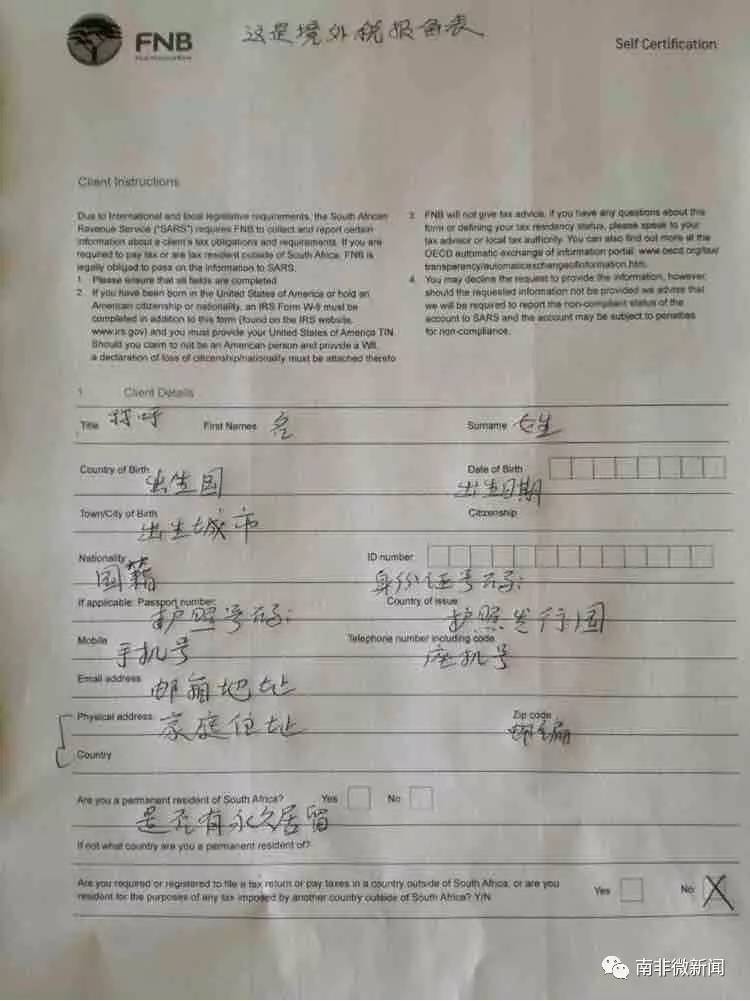 FNB
First National Bank
这是境外税报备表
Self Certification
Client Instructions
Due to International and local legislative requirements, the South African
Revenue Service ("SARS") requires FNB to collect and report certain
information about a client's tax obligations and requirements. If you are
required to pay tax or are tax resident outside of South Africa, FNB is
legally obliged to pass on the information to SARS.
1 Please ensure that all fields are completed
2. If you have been born in the United States of America or hold an
American citizenship or nationality, an IRS Form W-9 must be
completed in addition to this form (found on the IRS website,
www.irs.gov) and you must provide your United States of America TIN.
Should you claim to not be an American person and provide a W8,
a declaration of loss of citizenship/nationality must be attached thereto
3. FNB will not give tax advice, if you have any questions about this
form or defining your tax residency status, please speak to your
tax advisor or local tax authority. You can also find out more at the
OECD automatic exchange of information portal: www.oecd.org/tax/
transparency/automaticexchangeofinformation.htm.
4. You may decline the request to provide the information, however,
should the requested information not be provided we advise that
we will be required to report the non-compliant status of the
account to SARS and the account may be subject to penalties
for non-compliance.
1 Client Details
Title 称呼 First Names 名 Surname 姓
Country of Birth 出生国 Date of Birth 出生日期
Town/City of Birth 出生城市 Citizenship
Nationality 国籍 ID number 身份证号码:
If applicable: Passport number: 护照号码: Country of issue 护照发行国
Mobile 手机号 Telephone number including code 座机号
Email address 邮箱地址
Physical address 家庭住址 Zip code
Country
Are you a permanent resident of South Africa? Yes No
是否有永久居留
If not what country are you a permanent resident of?
Are you required or registered to file a tax return or pay taxes in a country outside of South Africa, or are you
resident for the purposes of any tax imposed by another country outside of South Africa? Y/N Yes No X
南非微新闻